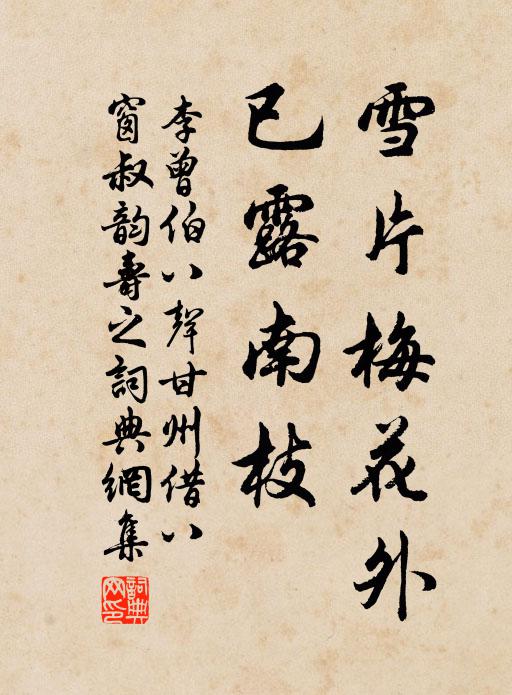 雪片梅花外
已露南枝
李曾伯八聲甘州借八
窗叔韵壽之詞典網集
詞典网印